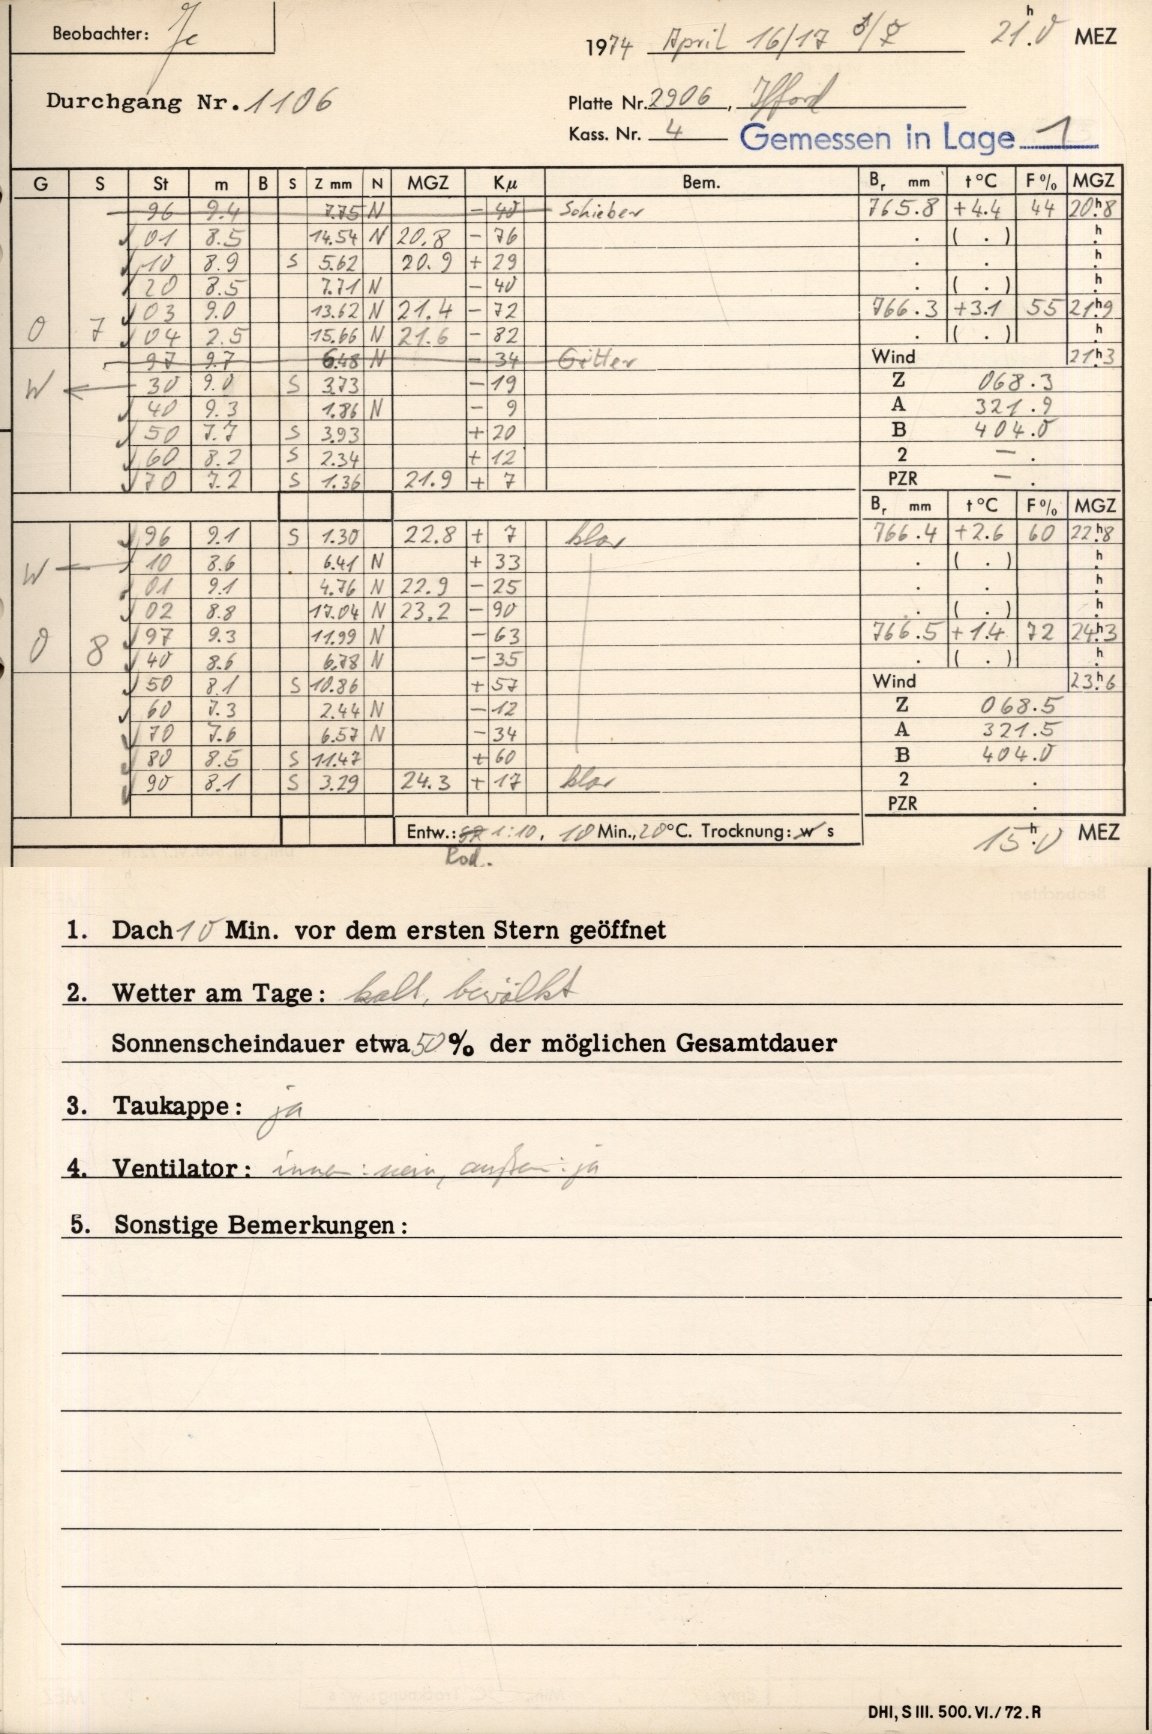 Beobachter: Je
1974 April 16/17 ♂/☿ 21.0 h MEZ
Durchgang Nr. 1106
Platte Nr. 2906, Ilford
Kass. Nr. 4 Gemessen in Lage 1
G S St m B S Z mm N MGZ Kμ Bem. Br mm t°C F% MGZ
96 9.4 7.75 N - 40 Schieber 765.8 +4.4 44 20h.8
01 8.5 14.54 N 20.8 - 76 . ( . ) h.
10 8.9 S 5.62 20.9 + 29 . . h.
20 8.5 7.71 N - 40 . ( . ) h.
03 9.0 13.62 N 21.4 - 72 766.3 +3.1 55 21h.9
O 7 04 2.5 15.66 N 21.6 - 82 . ( . ) h.
97 9.7 6.48 N - 34 Gitter Wind 21h.3
W ← 30 9.0 S 3.73 - 19 Z 068.3
40 9.3 1.86 N - 9 A 321.9
50 7.7 S 3.93 + 20 B 404.0
60 8.2 S 2.34 + 12 2 — .
70 7.2 S 1.36 21.9 + 7 PZR — .
Br mm t°C F% MGZ
96 9.1 S 1.30 22.8 + 7 klar 766.4 +2.6 60 22h.8
W ← 10 8.6 6.41 N + 33 . ( . ) h.
01 9.1 4.76 N 22.9 - 25 . . h.
02 8.8 17.04 N 23.2 - 90 . ( . ) h.
97 9.3 11.99 N - 63 766.5 +1.4 72 24h.3
O 8 40 8.6 6.78 N - 35 . ( . ) h.
50 8.1 S 10.86 + 57 Wind 23h.6
60 7.3 2.44 N - 12 Z 068.5
70 7.6 6.57 N - 34 A 321.5
80 8.5 S 11.47 + 60 B 404.0
90 8.1 S 3.29 24.3 + 17 klar 2 .
PZR .
Entw.: 1:10, 10 Min., 20°C. Trocknung: w s 15h.0 MEZ
Rod.
1. Dach 10 Min. vor dem ersten Stern geöffnet
2. Wetter am Tage: kalt, bewölkt
Sonnenscheindauer etwa 50% der möglichen Gesamtdauer
3. Taukappe: ja
4. Ventilator: innen: nein, außen: ja
5. Sonstige Bemerkungen:
DHI, S III. 500. VI./72. R